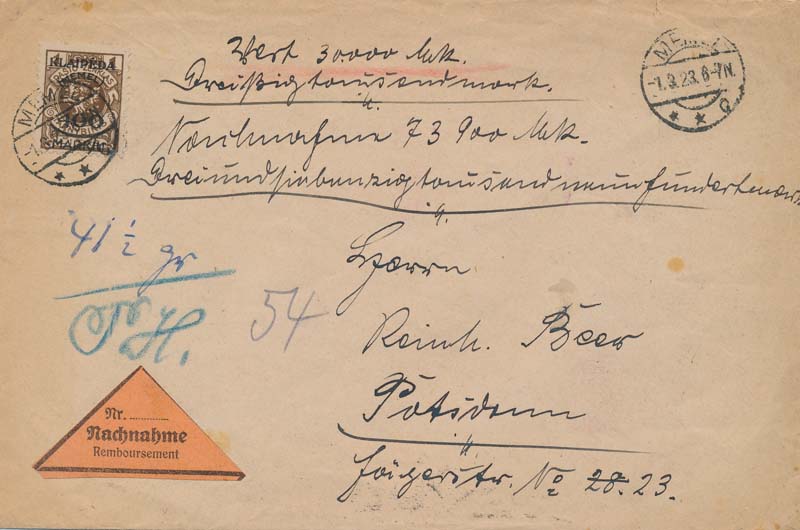 KLAIPEDA
MEMEL
100
MARKIU
MEMEL
Wert 30000 Mk.
Dreißigtausendmark.
MEMEL
-1.3.23.6-7N.
Nachnahme 73 900 Mk.
Dreiundsiebenzigtausendneunhundertmark
41 1/2 gr
N. H.
54
Herrn
Reinh. Beer
Potsdam
Jägerstr. No 28. 23.
Nr. ..........
Nachnahme
Remboursement